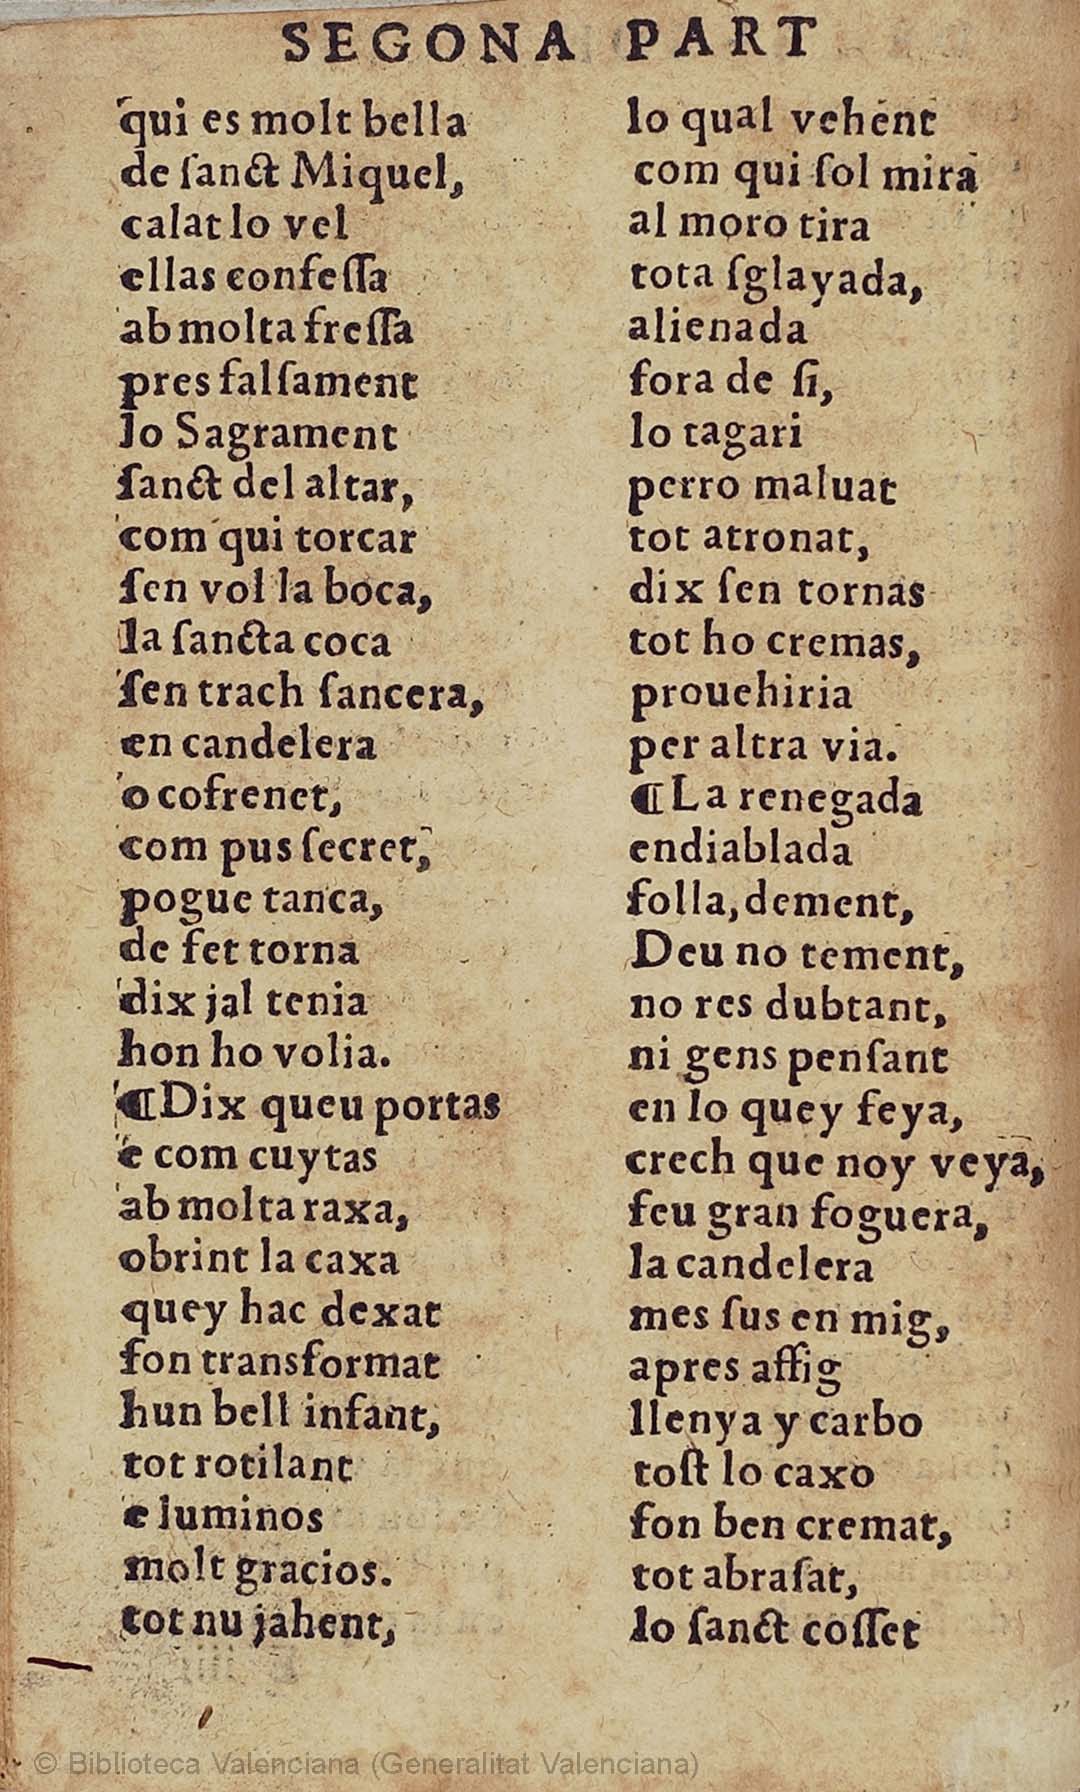 SEGONA PART
qui es molt bella
de ſanct Miquel,
calat lo vel
ellas confeſſa
ab molta freſſa
pres falſament
lo Sagrament
ſanct del altar,
com qui torcar
ſen vol la boca,
la ſancta coca
ſen trach ſancera,
en candelera
o cofrenet,
com pus ſecret,
pogue tanca,
de fet torna
dix jal tenia
hon ho volia.
¶Dix queu portas
e com cuytas
ab molta raxa,
obrint la caxa
quey hac dexat
fon transformat
hun bell infant,
tot rotilant
e luminos
molt gracios.
tot nu jahent,
lo qual vehent
com qui ſol mira
al moro tira
tota ſglayada,
alienada
fora de ſi,
lo tagari
perro maluat
tot atronat,
dix ſen tornas
tot ho cremas,
prouehiria
per altra via.
¶La renegada
endiablada
folla, dement,
Deu no tement,
no res dubtant,
ni gens penſant
en lo quey feya,
crech que noy veya,
feu gran foguera,
la candelera
mes ſus en mig,
apres affig
llenya y carbo
toſt lo caxo
fon ben cremat,
tot abraſat,
lo ſanct coſſet
© Biblioteca Valenciana (Generalitat Valenciana)